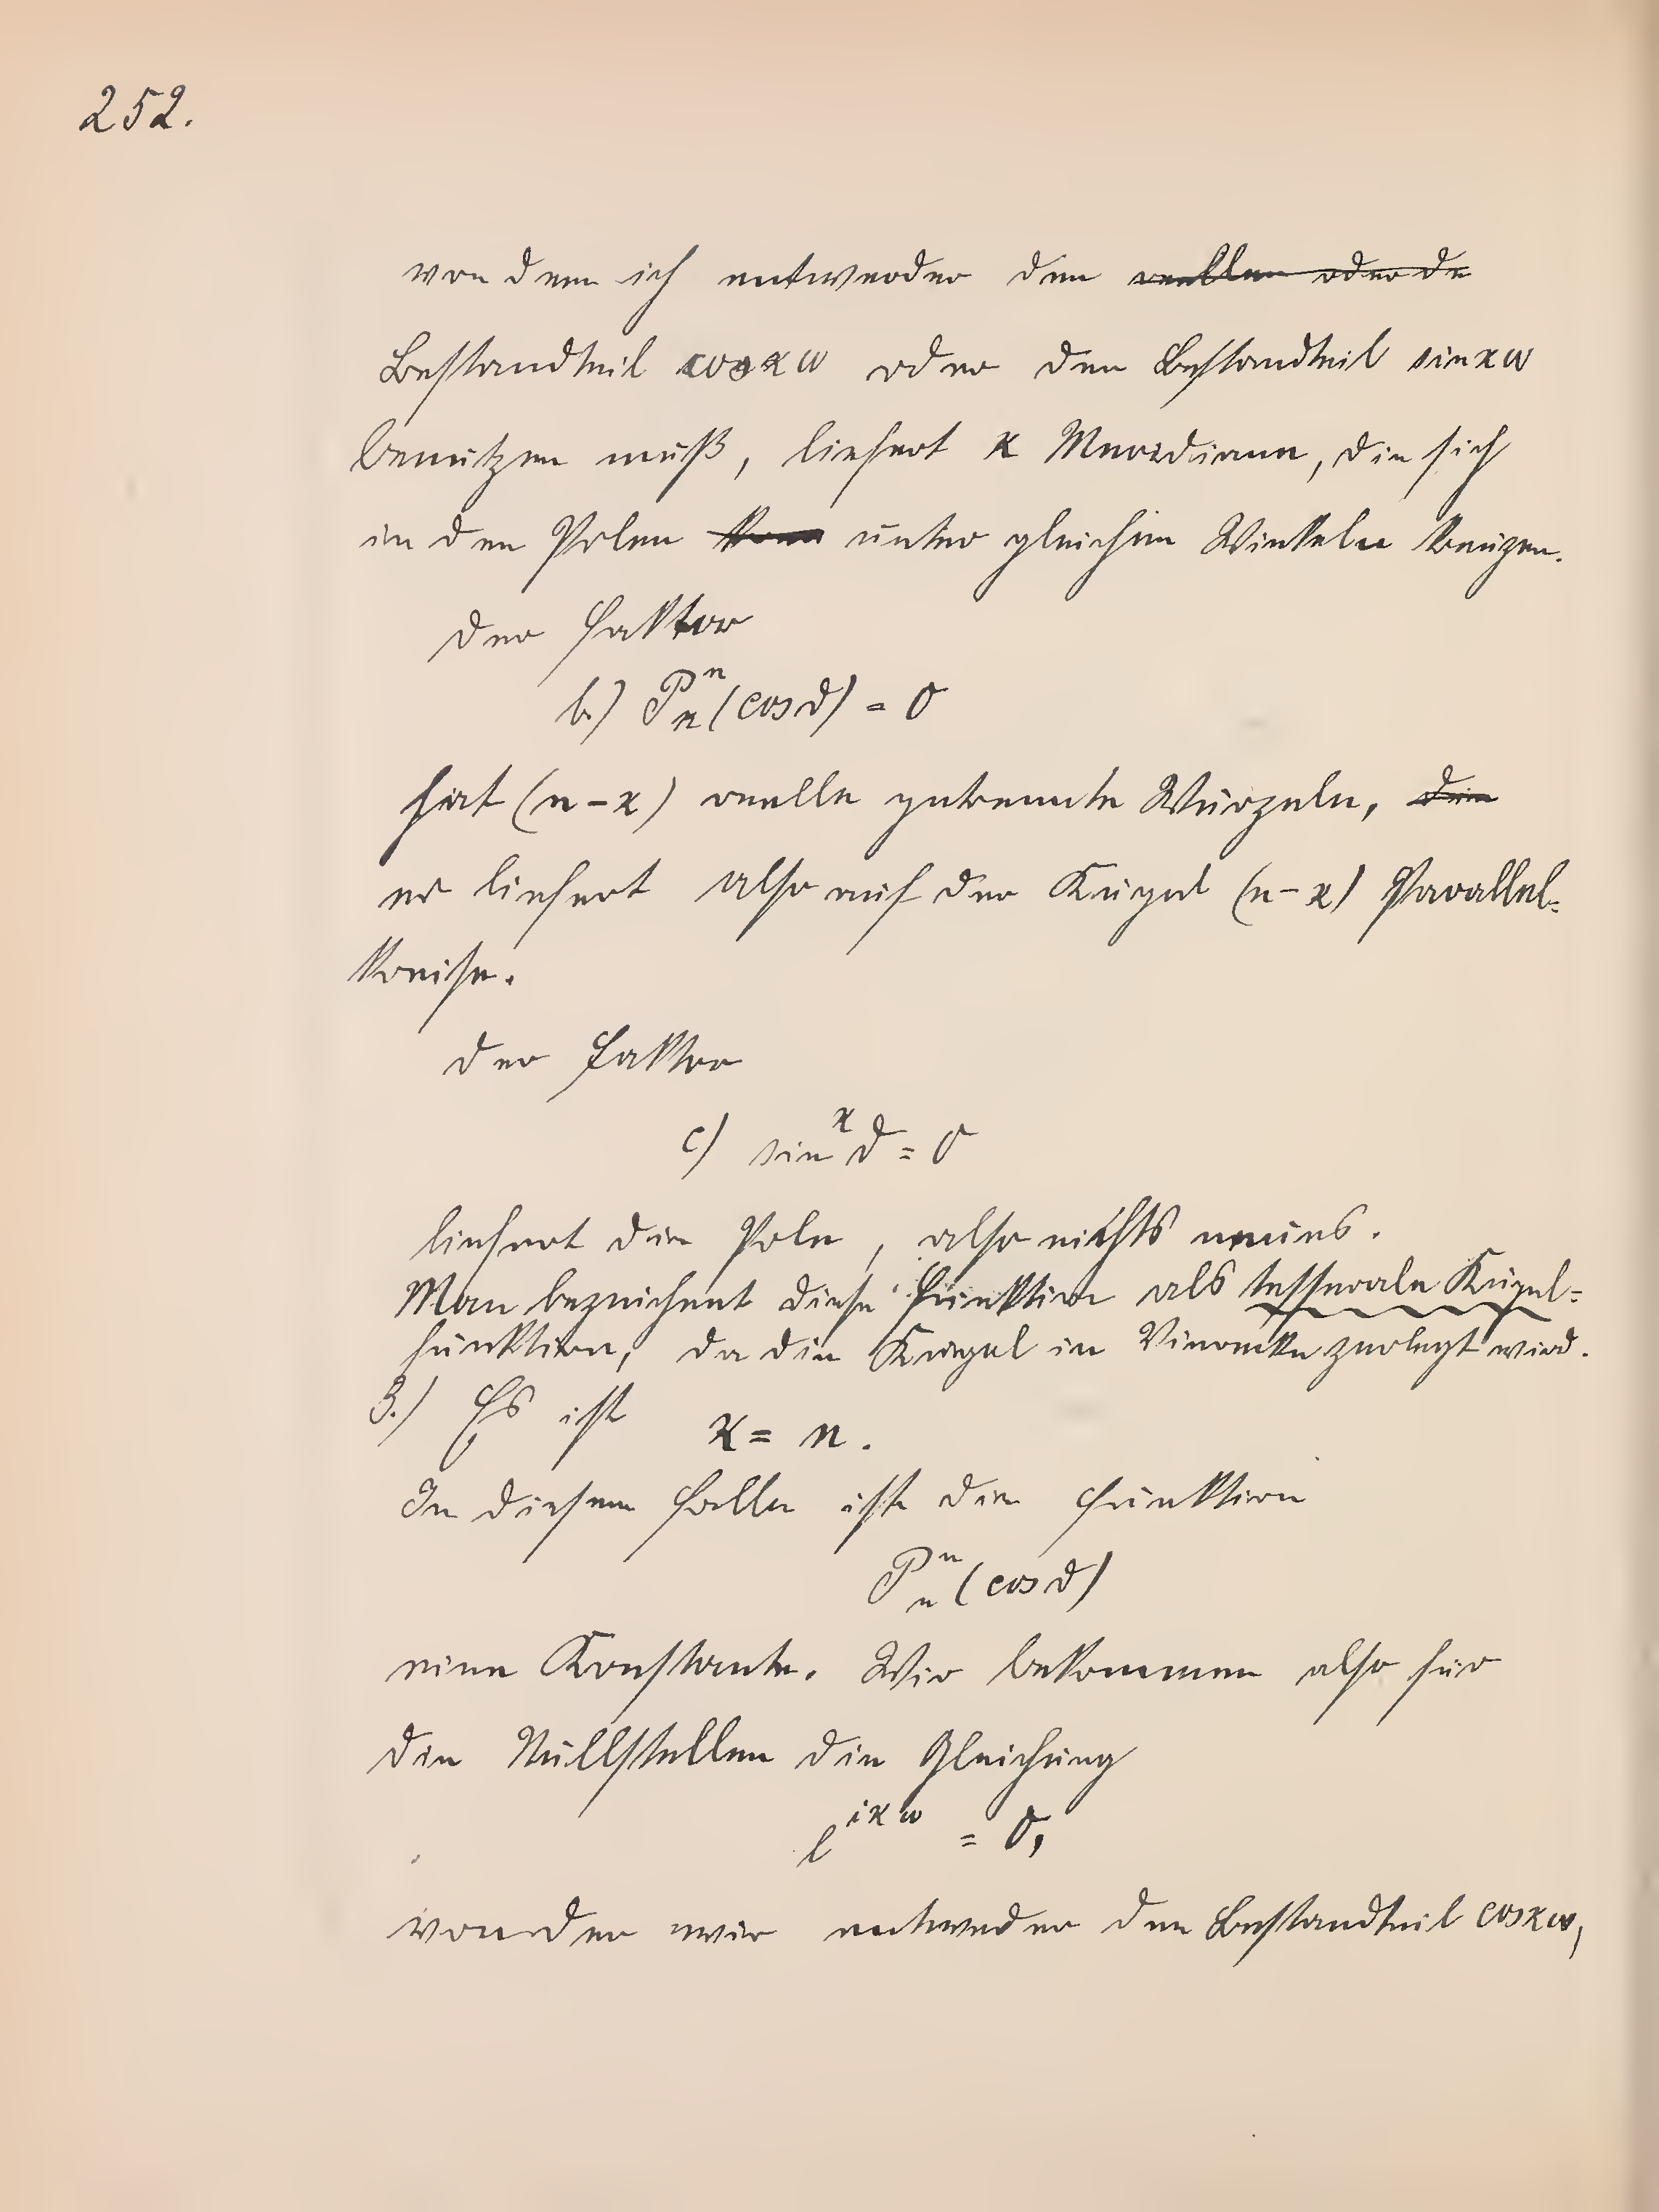 252.
von dem ich entweder den reellen oder de
Bestandteil cos ϰω oder den Bestandteil sin ϰω
benutzen muß, liefert ϰ Meridiane, die sich
in den Polen unter gleichen Winkeln kreuzen.
Der Faktor
b.) Pₙⁿ(cos ϑ) = 0
hat (n-ϰ) reelle getrennte Wurzeln, die
er liefert also auf der Kugel (n-ϰ) Parallel-
kreise.
Der Faktor
c) sin^ϰ ϑ = 0
liefert die Pole, also nichts neues.
Man bezeichnet diese Funktion als tesserale Kugel-
funktion, da die Kugel in Vierecke zerlegt wird.
3.) Es ist ϰ = n.
In diesem Falle ist die Funktion
Pₙⁿ(cos ϑ)
eine Konstante. Wir bekommen also für
die Nullstellen die Gleichung
e^{iϰω} = 0,
von der wir entweder den Bestandteil cos ϰω,